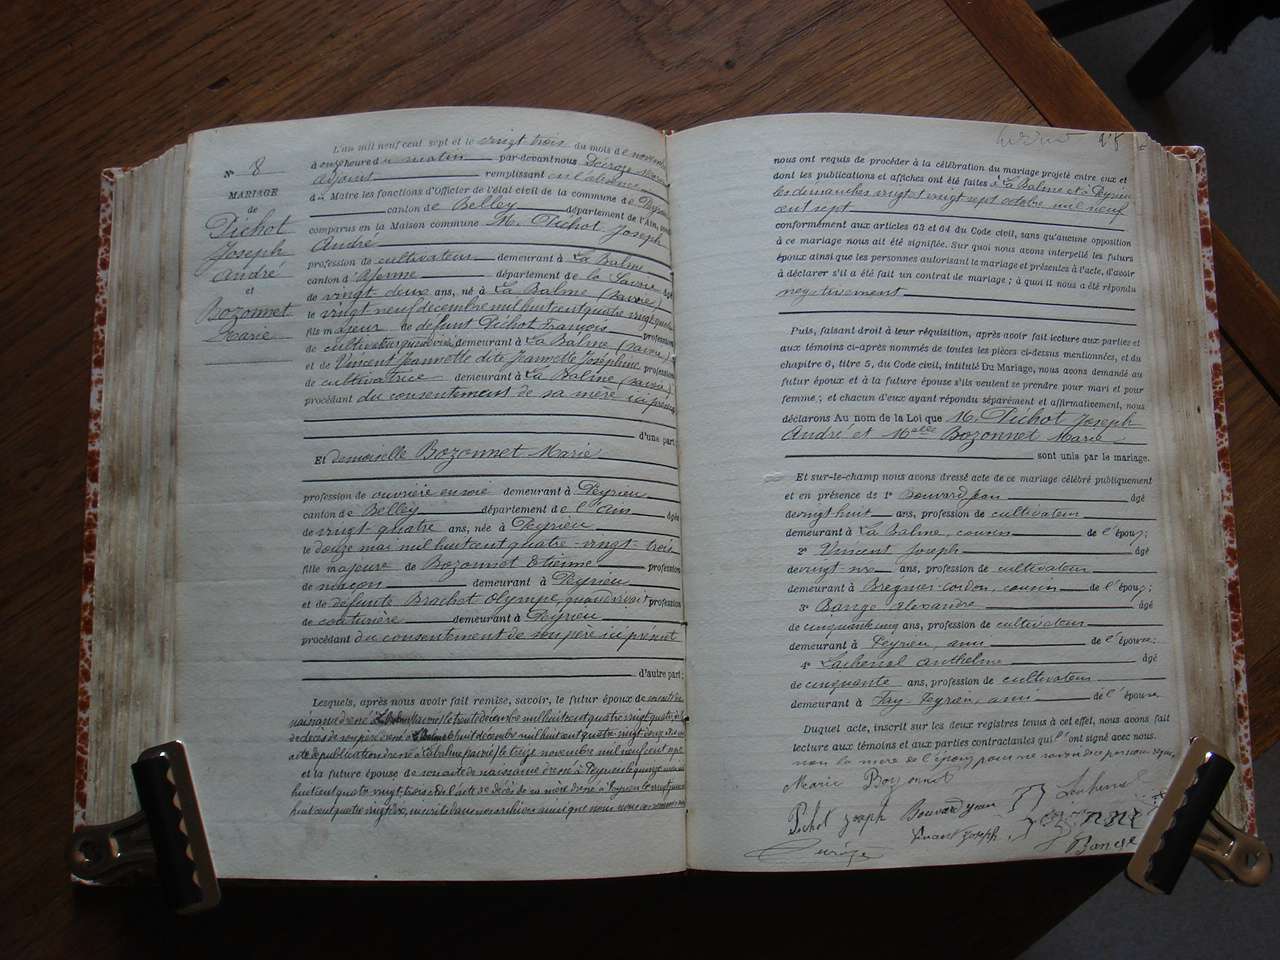 N° 8
MARIAGE
de
Pichot
Joseph
André
et
Bozonnet
Marie
L'an mil neuf cent sept et le vingt trois du mois de novembre
à onze heure du matin par-devant nous
adjoint remplissant
du Maire les fonctions d'Officier de l'état civil de la commune de Peyrieu
canton de Belley département de l'Ain,
comparus en la Maison commune M. Pichot Joseph
André
profession de cultivateur demeurant à La Balme
canton d'Yenne département de la Savoie âgé
de vingt deux ans, né à La Balme (Savoie)
le vingt neuf décembre mil huit cent quatre vingt quatre
fils majeur de défunt Pichot François profession
de cultivateur demeurant à La Balme (Savoie)
et de Vincent Jeannette dite Jeannette Joséphine profession
de cultivatrice demeurant à La Balme (Savoie)
procédant du consentement de sa mère ici présente
d'une part;
Et demoiselle Bozonnet Marie
profession de ouvrière en soie demeurant à Peyrieu
canton de Belley département de l'Ain âgée
de vingt-quatre ans, née à Peyrieu
le douze mai mil huit cent quatre-vingt-trois
fille majeure de Bozonnet Etienne profession
de maçon demeurant à Peyrieu
et de défunte Brachet Olympe, quand vivait profession
de couturière demeurant à Peyrieu
procédant du consentement de son père ici présent
d'autre part;
Lesquels, après nous avoir fait remise, savoir, le futur époux de son acte de
naissance dréssé à le trente décembre mil huit cent quatre vingt quatre
de décès de son père dréssé à huit décembre mil huit cent quatre vingt
acte de publication dréssé à La Balme novembre mil neuf cent sept
et la future épouse de son acte de naissance dréssé à Peyrieu
huit cent quatre vingt trois de l'acte de décès de sa mère dréssé à Peyrieu
huit cent quatre vingt dix, inscrits dans nos archives ainsi que nous
nous ont requis de procéder à la célébration du mariage projeté entre eux et
dont les publications et affiches ont été faites à La Balme et à Peyrieu
les dimanches vingt et vingt sept octobre mil neuf
cent sept
conformément aux articles 63 et 64 du Code civil, sans qu'aucune opposition
à ce mariage nous ait été signifiée. Sur quoi nous avons interpellé les futurs
époux ainsi que les personnes autorisant le mariage et présentes à l'acte, d'avoir
à déclarer s'il a été fait un contrat de mariage; à quoi il nous a été répondu
négativement
Puis, faisant droit à leur réquisition, après avoir fait lecture aux parties et
aux témoins ci-après nommés de toutes les pièces ci-dessus mentionnées, et du
chapitre 6, titre 5, du Code civil, intitulé Du Mariage, nous avons demandé au
futur époux et à la future épouse s'ils veulent se prendre pour mari et pour
femme; et chacun d'eux ayant répondu séparément et affirmativement, nous
déclarons Au nom de la Loi que M. Pichot Joseph
André et Melle Bozonnet Marie
sont unis par le mariage.
Et sur-le-champ nous avons dressé acte de ce mariage célébré publiquement
et en présence de 1° Bouvard Jean âgé
de vingt huit ans, profession de cultivateur
demeurant à La Balme, cousin de l'époux;
2° Vincent Joseph âgé
de vingt ans, profession de cultivateur
demeurant à Brégnier-Cordon, cousin de l'époux;
3° Bange Alexandre âgé
de cinquante cinq ans, profession de cultivateur
demeurant à Peyrieu, ami de l'épouse;
4° Lachenal Anthelme âgé
de cinquante ans, profession de cultivateur
demeurant à Fay-Peyrieu, ami de l'épouse
Duquel acte, inscrit sur les deux registres tenus à cet effet, nous avons fait
lecture aux témoins et aux parties contractantes qui l'ont signé avec nous.
non la mère de l'époux pour ne savoir de ce personne requise
Marie Bozonnet
Pichot Joseph Bouvard Jean
Vincent Joseph
Bange